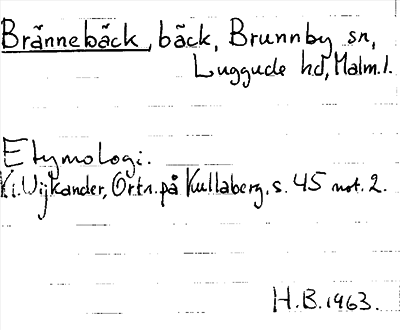 Brännebäck, bäck, Brunnby sn,
Luggude hd, Malm. l.
Etymologi.
K. Vijkander, Ortn. på Kullaberg, s. 45 not. 2.
H.B. 1963.